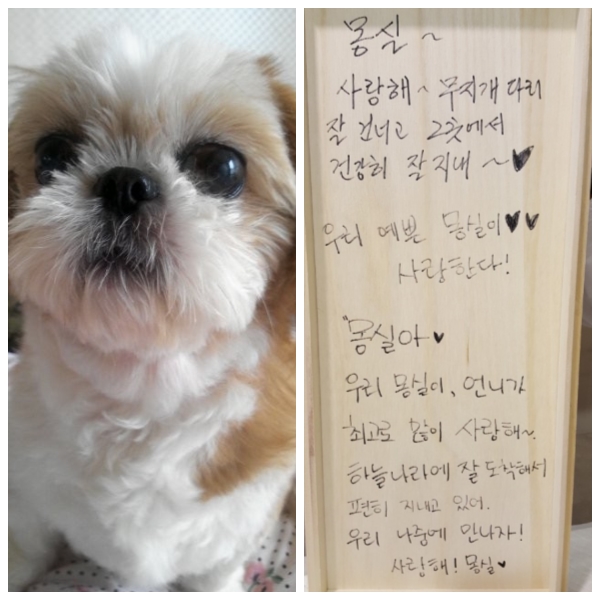 몽실 ~
사랑해~ 무지개 다리
잘 건너고 그곳에서
건강히 잘 지내 ~♥
우리 예쁜 몽실이♥♥
사랑한다!
"몽실아♥
우리 몽실이, 언니가
최고로 많이 사랑해~.
하늘나라에 잘 도착해서
편히 지내고 있어.
우리 나중에 만나자!
사랑해! 몽실♥